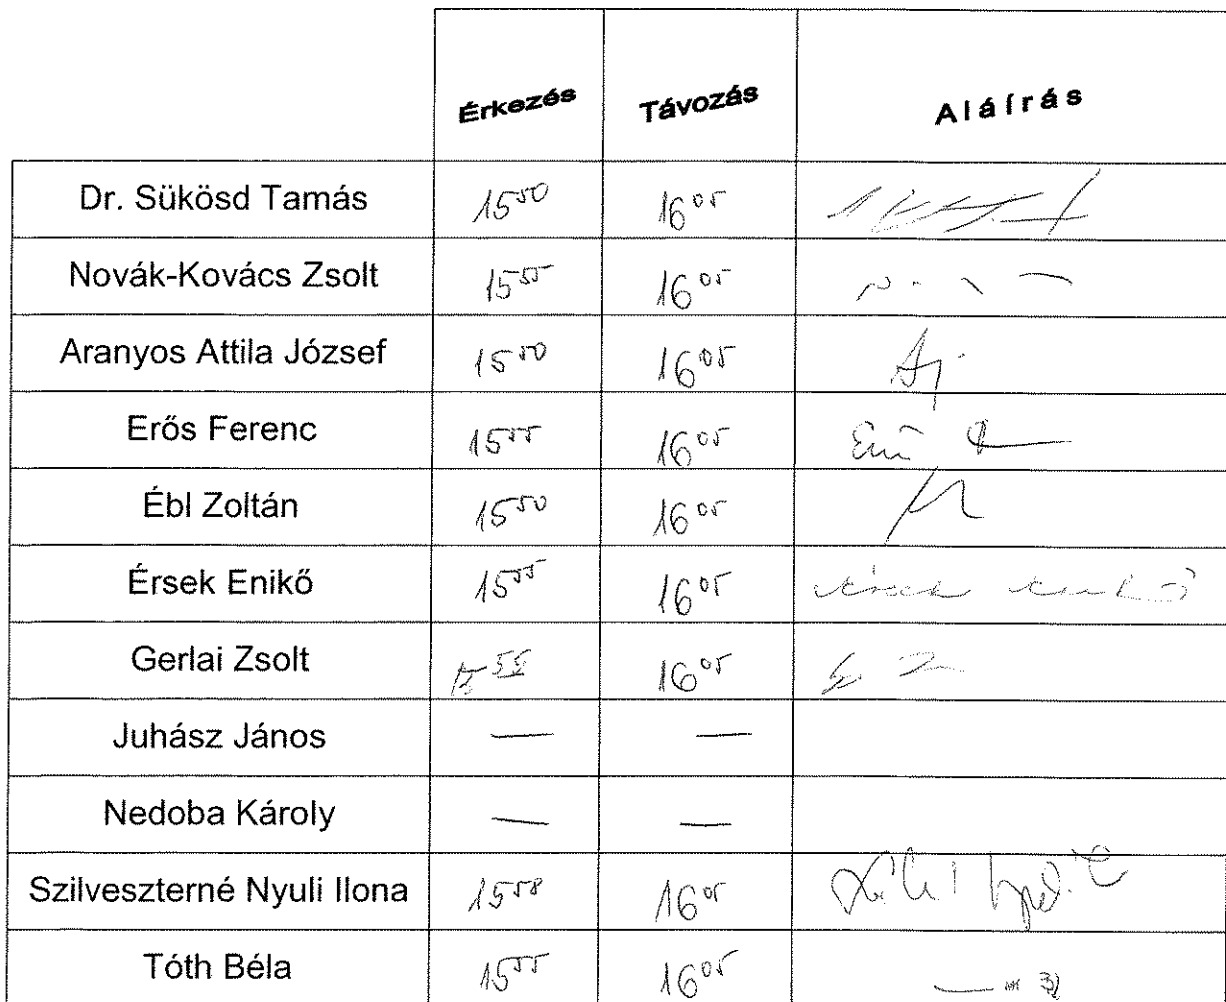 Érkezés Távozás Aláírás
Dr. Sükösd Tamás 15⁵⁰ 16⁰⁵
Novák-Kovács Zsolt 15⁵⁵ 16⁰⁵
Aranyos Attila József 15⁵⁰ 16⁰⁵
Erős Ferenc 15⁵⁵ 16⁰⁵
Ébl Zoltán 15⁵⁰ 16⁰⁵
Érsek Enikő 15⁵⁵ 16⁰⁵ Érsek Enikő
Gerlai Zsolt 15⁵⁵ 16⁰⁵
Juhász János — —
Nedoba Károly — —
Szilveszterné Nyuli Ilona 15⁵⁸ 16⁰⁵
Tóth Béla 15⁵⁵ 16⁰⁵